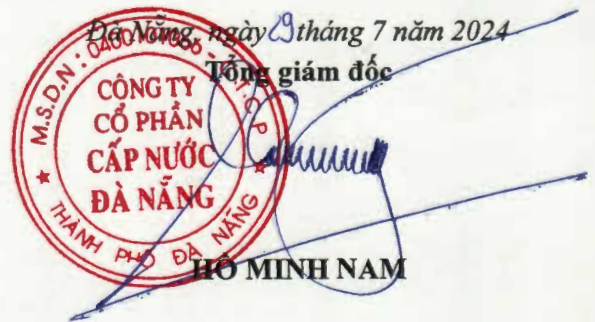 Đà Nẵng, ngày 29 tháng 7 năm 2024
Tổng giám đốc
M.S.D.N: - C.T.C.P
CÔNG TY
CỔ PHẦN
CẤP NƯỚC
ĐÀ NẴNG
THÀNH PHỐ ĐÀ NẴNG
HỒ MINH NAM